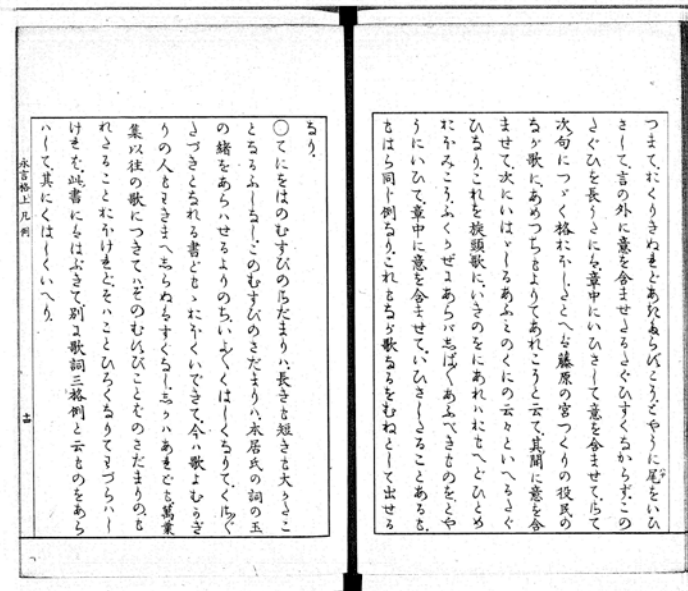 つまで、おくりきぬれどあきたらびこう、とやうに尾をいひ
さして、言の外に意を含ませたるたぐひすくなからず、この
たぐひを長うたにも、章中にいひさして意を含ませて、にて
次句につゞく格おほし、たとへば藤原の宮つくりの役民の
なが歌に、あめつちもよりてあれこうと云て、其間に意を含
ませて、次にいはゞしるあふみのくにの云々といへるたぐ
ひなり、これを旋頭歌に、いきのをにあれハおもへどひとめ
おほみこう、ふくかぜにあらバしばしバあふべきものを、とや
うにいひて、章中に意を含ませて、いひさしたることあるも、
もはら同じ例なり、これもなが歌なるをむねとして出せる
なり、
○てにをはのむすびのさだまりハ、長きも短きも大かたこ
となるふしなし、このむすびのさだまりハ、本居氏の詞の玉
の緒をあらハせるよりのち、いよゝくはしくなりて、くさぐ
さづきとなれる書どもゝおほくいできて、今ハ歌よむうぎ
りの人もわきまへしらぬもすくなし、しかハあれども萬葉
集以往の歌につきてハ、そのむすびことばのさだまりの、も
れたることおほけれど、そハことひろくなりてわづらハし
ければ、此書にもはぶきて、別に歌詞三格例と云ものをあら
ハして、其にくはしくいへり、
永言格上 凡例
十四